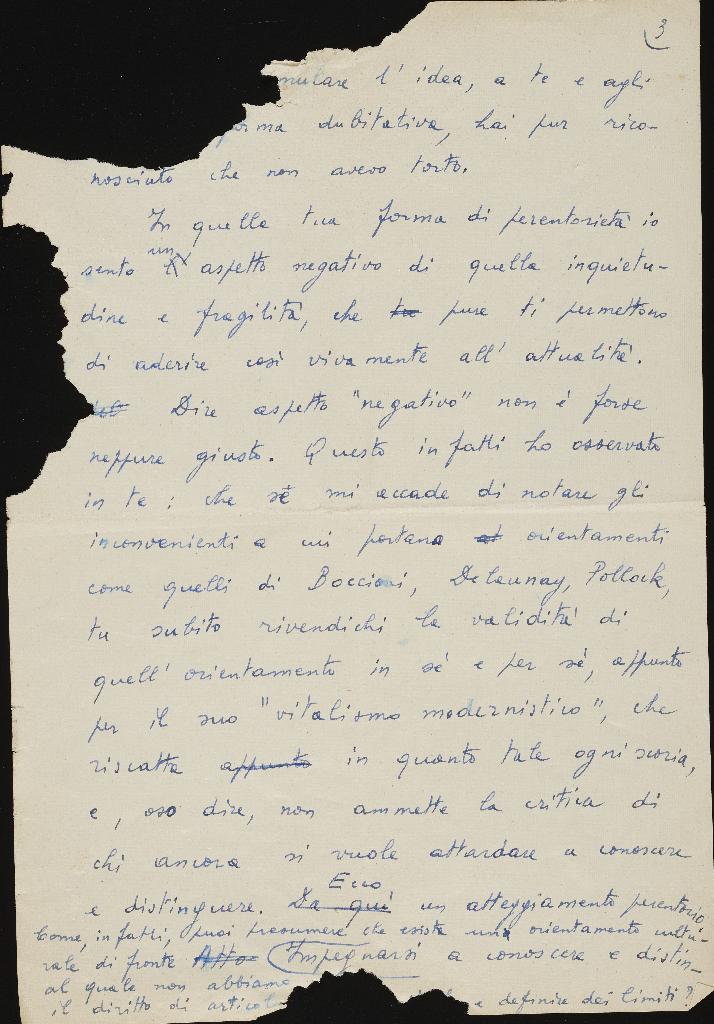 3
mulare l'idea, a te e agli
forma dubitativa, hai pur rico-
nosciuto che non avevo torto.
In quella tua forma di perentorietà io
un
sento aspetto negativo di quella inquietu-
dine e fragilità, che pure ti permettono
di aderire così vivamente all'attualità.
Dire aspetto "negativo" non è forse
neppure giusto. Questo infatti ho osservato
in te: che se mi accade di notare gli
inconvenienti a cui portano orientamenti
come quelli di Boccioni, Delaunay, Pollock,
tu subito rivendichi la validità di
quell'orientamento in sé e per sé, appunto
per il suo "vitalismo modernistico", che
riscatta appunto in quanto tale ogni scoria,
e, oso dire, non ammette la critica di
chi ancora si vuole attardare a conoscere
Ecco
e distinguere. Da qui un atteggiamento perentorio
Come, infatti, puoi presumere che esista una orientamento cultu-
rale di fronte Atto Impegnarsi a conoscere e distin-
al quale non abbiamo
il diritto di articol e definire dei limiti?